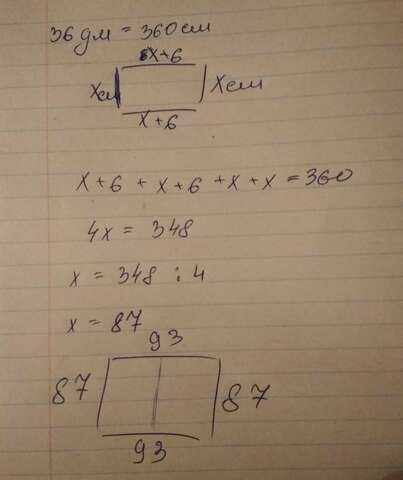 36 дм = 360 см
x+6
x см
x см
x+6
x+6 + x+6 + x + x = 360
4x = 348
x = 348 : 4
x = 87
93
87
87
93